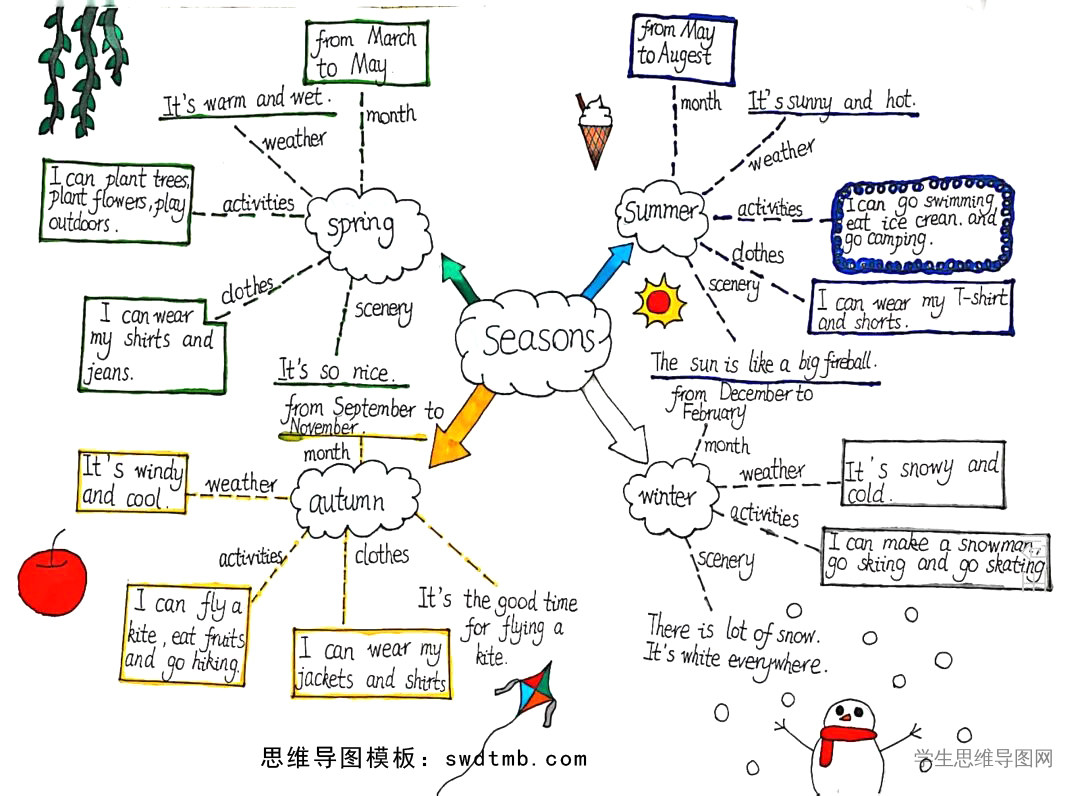 seasons
spring
month
from March
to May.
weather
It's warm and wet.
activities
I can plant trees,
plant flowers, play
outdoors.
clothes
I can wear
my shirts and
jeans.
scenery
It's so nice.
summer
month
from May
to Augest
weather
It's sunny and hot.
activities
I can go swimming,
eat ice crean. and
go camping.
clothes
I can wear my T-shirt
and shorts.
scenery
The sun is like a big fireball.
autumn
month
from September to
November.
weather
It's windy
and cool.
activities
I can fly a
kite, eat fruits
and go hiking.
clothes
I can wear my
jackets and shirts
It's the good time
for flying a
kite.
winter
month
from December to
February
weather
It's snowy and
cold.
activities
I can make a snowman,
go skiing and go skating
scenery
There is lot of snow.
It's white everywhere.
思维导图模板：swdtmb.com
学生思维导图网